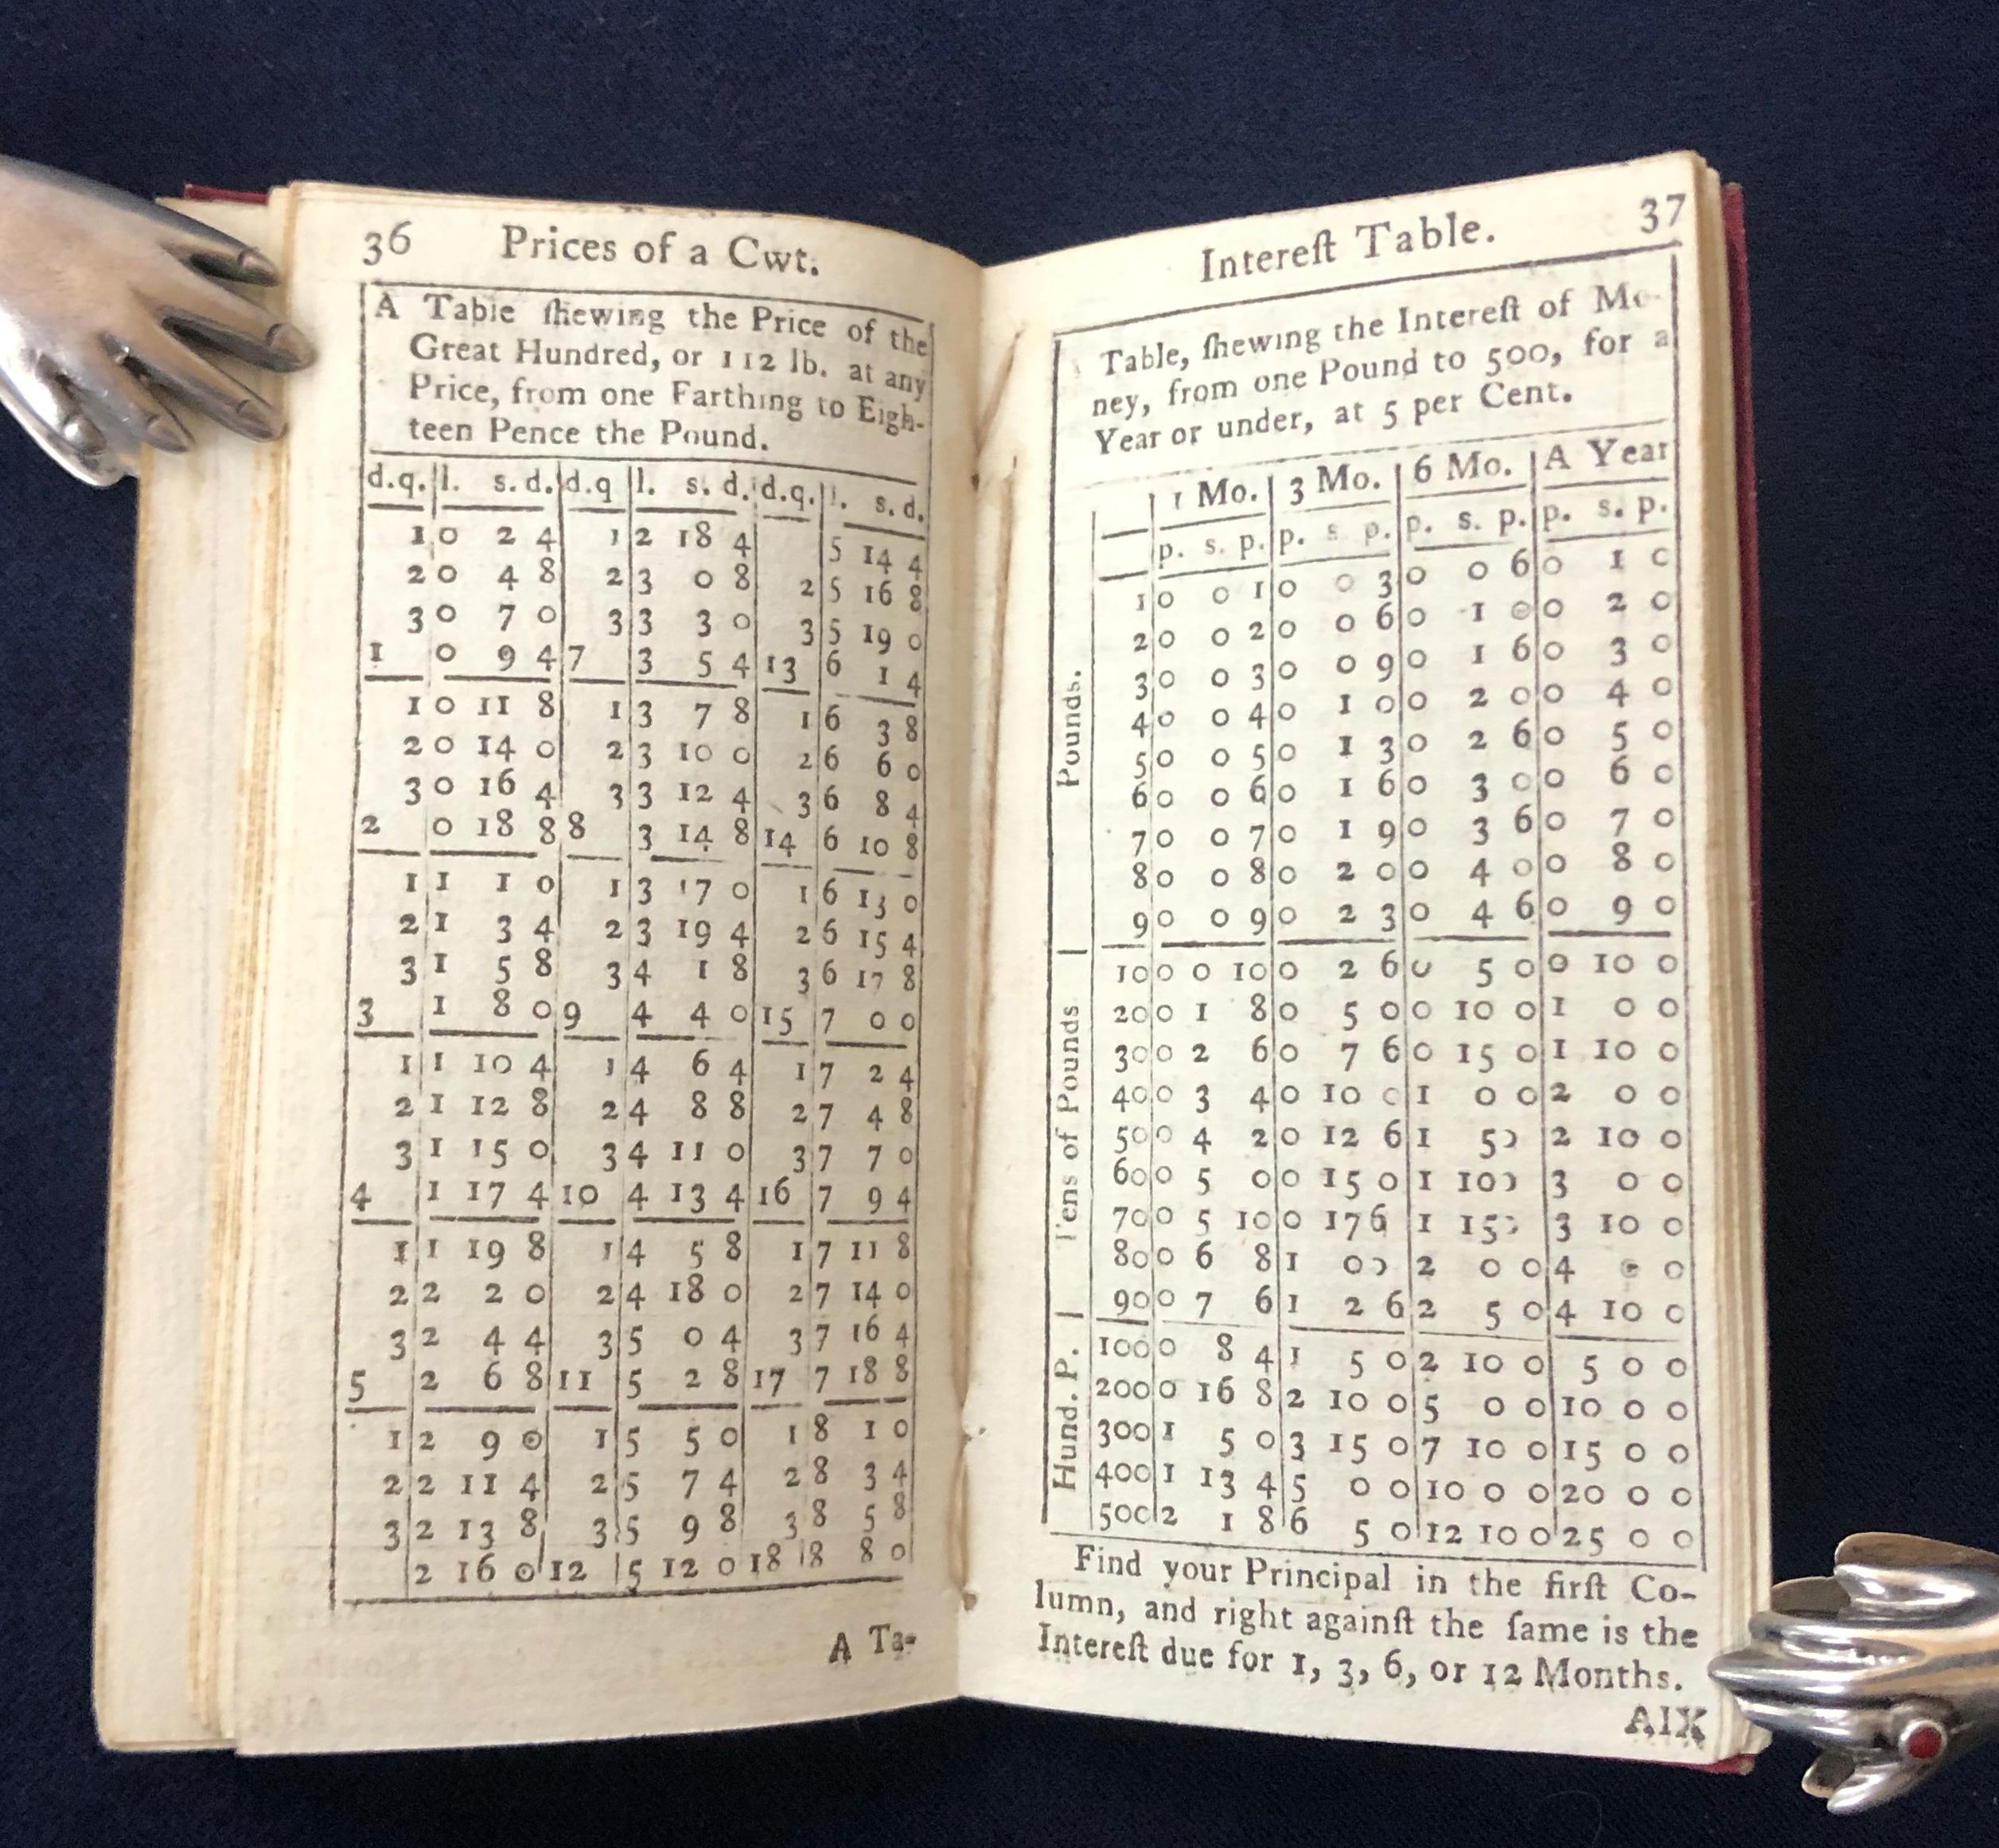 36 Prices of a Cwt.
A Table ſhewing the Price of the
Great Hundred, or 112 lb. at any
Price, from one Farthing to Eigh-
teen Pence the Pound.
d.q. l. s. d. d.q l. s. d. d.q. l. s. d.
1 0 2 4 1 2 18 4 5 14 4
2 0 4 8 2 3 0 8 2 5 16 8
3 0 7 0 3 3 3 0 3 5 19 0
1 0 9 4 7 3 5 4 13 6 1 4
1 0 11 8 1 3 7 8 1 6 3 8
2 0 14 0 2 3 10 0 2 6 6 0
3 0 16 4 3 3 12 4 3 6 8 4
2 0 18 8 8 3 14 8 14 6 10 8
1 1 1 0 1 3 17 0 1 6 13 0
2 1 3 4 2 3 19 4 2 6 15 4
3 1 5 8 3 4 1 8 3 6 17 8
3 1 8 0 9 4 4 0 15 7 0 0
1 1 10 4 1 4 6 4 1 7 2 4
2 1 12 8 2 4 8 8 2 7 4 8
3 1 15 0 3 4 11 0 3 7 7 0
4 1 17 4 10 4 13 4 16 7 9 4
1 1 19 8 1 4 5 8 1 7 11 8
2 2 2 0 2 4 18 0 2 7 14 0
3 2 4 4 3 5 0 4 3 7 16 4
5 2 6 8 11 5 2 8 17 7 18 8
1 2 9 0 1 5 5 0 1 8 1 0
2 2 11 4 2 5 7 4 2 8 3 4
3 2 13 8 3 5 9 8 3 8 5 8
2 16 0 12 5 12 0 18 8 8 0
A Ta-
Intereſt Table. 37
Table, ſhewing the Intereſt of Mo-
ney, from one Pound to 500, for a
Year or under, at 5 per Cent.
1 Mo. 3 Mo. 6 Mo. A Year
p. s. p. p. s p. p. s. p. p. s. p.
Pounds.
1 0 0 1 0 0 3 0 0 6 0 1 0
2 0 0 2 0 0 6 0 1 0 0 2 0
3 0 0 3 0 0 9 0 1 6 0 3 0
4 0 0 4 0 1 0 0 2 0 0 4 0
5 0 0 5 0 1 3 0 2 6 0 5 0
6 0 0 6 0 1 6 0 3 0 0 6 0
7 0 0 7 0 1 9 0 3 6 0 7 0
8 0 0 8 0 2 0 0 4 0 0 8 0
9 0 0 9 0 2 3 0 4 6 0 9 0
Tens of Pounds
10 0 0 10 0 2 6 0 5 0 0 10 0
20 0 1 8 0 5 0 0 10 0 1 0 0
30 0 2 6 0 7 6 0 15 0 1 10 0
40 0 3 4 0 10 0 1 0 0 2 0 0
50 0 4 2 0 12 6 1 5 0 2 10 0
60 0 5 0 0 15 0 1 10 0 3 0 0
70 0 5 10 0 17 6 1 15 0 3 10 0
80 0 6 8 1 0 0 2 0 0 4 0 0
90 0 7 6 1 2 6 2 5 0 4 10 0
Hund. P.
100 0 8 4 1 5 0 2 10 0 5 0 0
200 0 16 8 2 10 0 5 0 0 10 0 0
300 1 5 0 3 15 0 7 10 0 15 0 0
400 1 13 4 5 0 0 10 0 0 20 0 0
500 2 1 8 6 5 0 12 10 0 25 0 0
Find your Principal in the firſt Co-
lumn, and right againſt the ſame is the
Intereſt due for 1, 3, 6, or 12 Months.
AIX